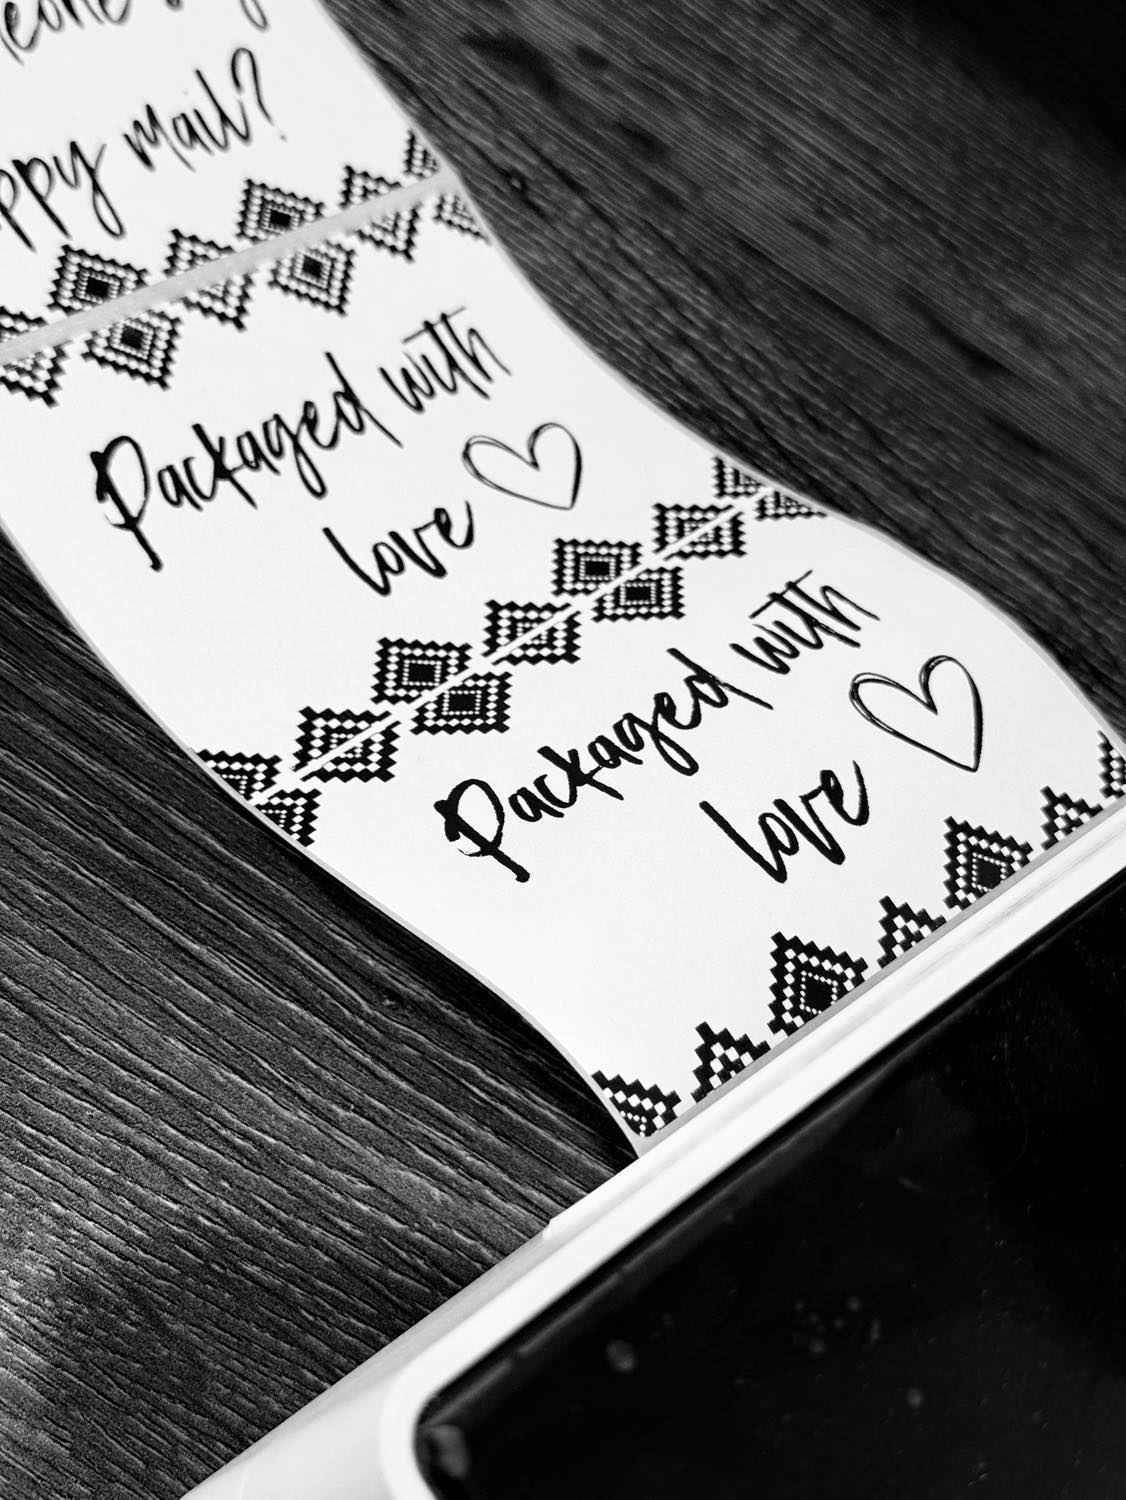 mail?
Packaged with
love
Packaged with
love